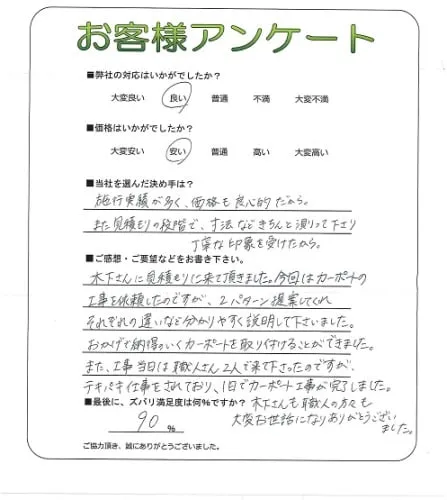 お客様アンケート
■弊社の対応はいかがでしたか？
大変良い 良い 普通 不満 大変不満
■価格はいかがでしたか？
大変安い 安い 普通 高い 大変高い
■当社を選んだ決め手は？
施行実績が多く、価格も良心的だから。
また見積もりの段階で、寸法などきちんと測って下さり
丁寧な印象を受けたから。
■ご感想・ご要望などをお書き下さい。
木下さんに見積もりに来て頂きました。今回はカーポートの
工事を依頼したのですが、2パターン提案してくれ
それぞれの違いなど分かりやすく説明して下さいました。
おかげで納得のいくカーポートを取り付けることができました。
また、工事当日は職人さん2人で来て下さったのですが、
テキパキ仕事をされており、1日でカーポート工事が完了しました。
■最後に、ズバリ満足度は何%ですか？ 木下さんも職人の方々も
90 % 大変お世話になりありがとうござい
ました。
ご協力頂き、誠にありがとうございました。